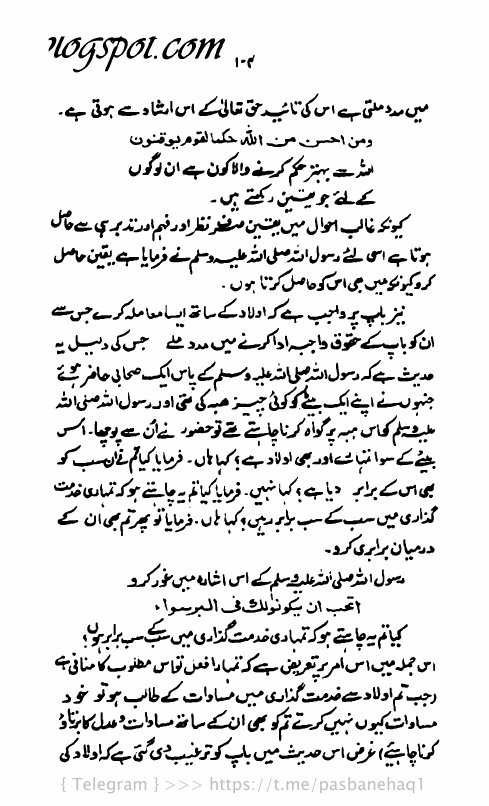 blogspot.com
۱۰۴
میں مدد ملتی ہے اس کی تائید حق تعالیٰ کے اس ارشاد سے ہوتی ہے۔
ومن احسن من اللہ حکما لقوم یوقنون
اللہ سے بہتر حکم کرنے والا کون ہے ان لوگوں
کے لئے جو یقین رکھتے ہیں۔
کیونکہ غالب احوال میں یقین منظر نظر اور فہم اور تدبر ہی سے حاصل
ہوتا ہے اسی لئے رسول اللہ صلی اللہ علیہ وسلم نے فرمایا ہے یقین حاصل
کرو کیونکہ میں بھی اس کو حاصل کرتا ہوں۔
نیز باپ پر واجب ہے کہ اولاد کے ساتھ ایسا معاملہ کرے جس سے
ان کو باپ کے حقوق واجبہ ادا کرنے میں مدد ملے جس کی دلیل یہ
حدیث ہے کہ رسول اللہ صلی اللہ علیہ وسلم کے پاس ایک صحابی حاضر ہوئے
جنہوں نے اپنے ایک بیٹے کو کوئی چیز ھبہ کی تھی اور رسول اللہ صلی اللہ
علیہ وسلم کو اس ہبہ پر گواہ کرنا چاہتے تھے تو حضور نے ان سے پوچھا۔ اس
بیٹے کے سوا تمہارے اور بھی اولاد ہے؟ کہا ہاں۔ فرمایا کیا تم نے ان سب کو
بھی اس کے برابر دیا ہے؟ کہا نہیں۔ فرمایا کیا تم یہ چاہتے ہو کہ تمہاری خدمت
گذاری میں سب کے سب برابر رہیں؟ کہا ہاں۔ فرمایا تو پھر تم بھی ان کے
درمیان برابری کرو۔
رسول اللہ صلی اللہ علیہ وسلم کے اس اشارہ میں غور کرو
اتحب ان یکونوا لک فی البر سواء
کیا تم یہ چاہتے ہو کہ تمہاری خدمت گذاری میں سب کے سب برابر ہوں؟
اس جملہ میں اس امر پر تعریض ہے کہ تمہارا فعل تو اس مطلوب کا منافی ہے
(جب تم اولاد سے خدمت گذاری میں مساوات کے طالب ہو تو خود
مساوات کیوں نہیں کرتے تم کو بھی ان کے ساتھ مساوات و عدل کا برتاؤ
کرنا چاہئے) غرض اس حدیث میں باپ کو ترغیب دی گئی ہے کہ اولاد کی
{ Telegram } >>> https://t.me/pasbanehaq1